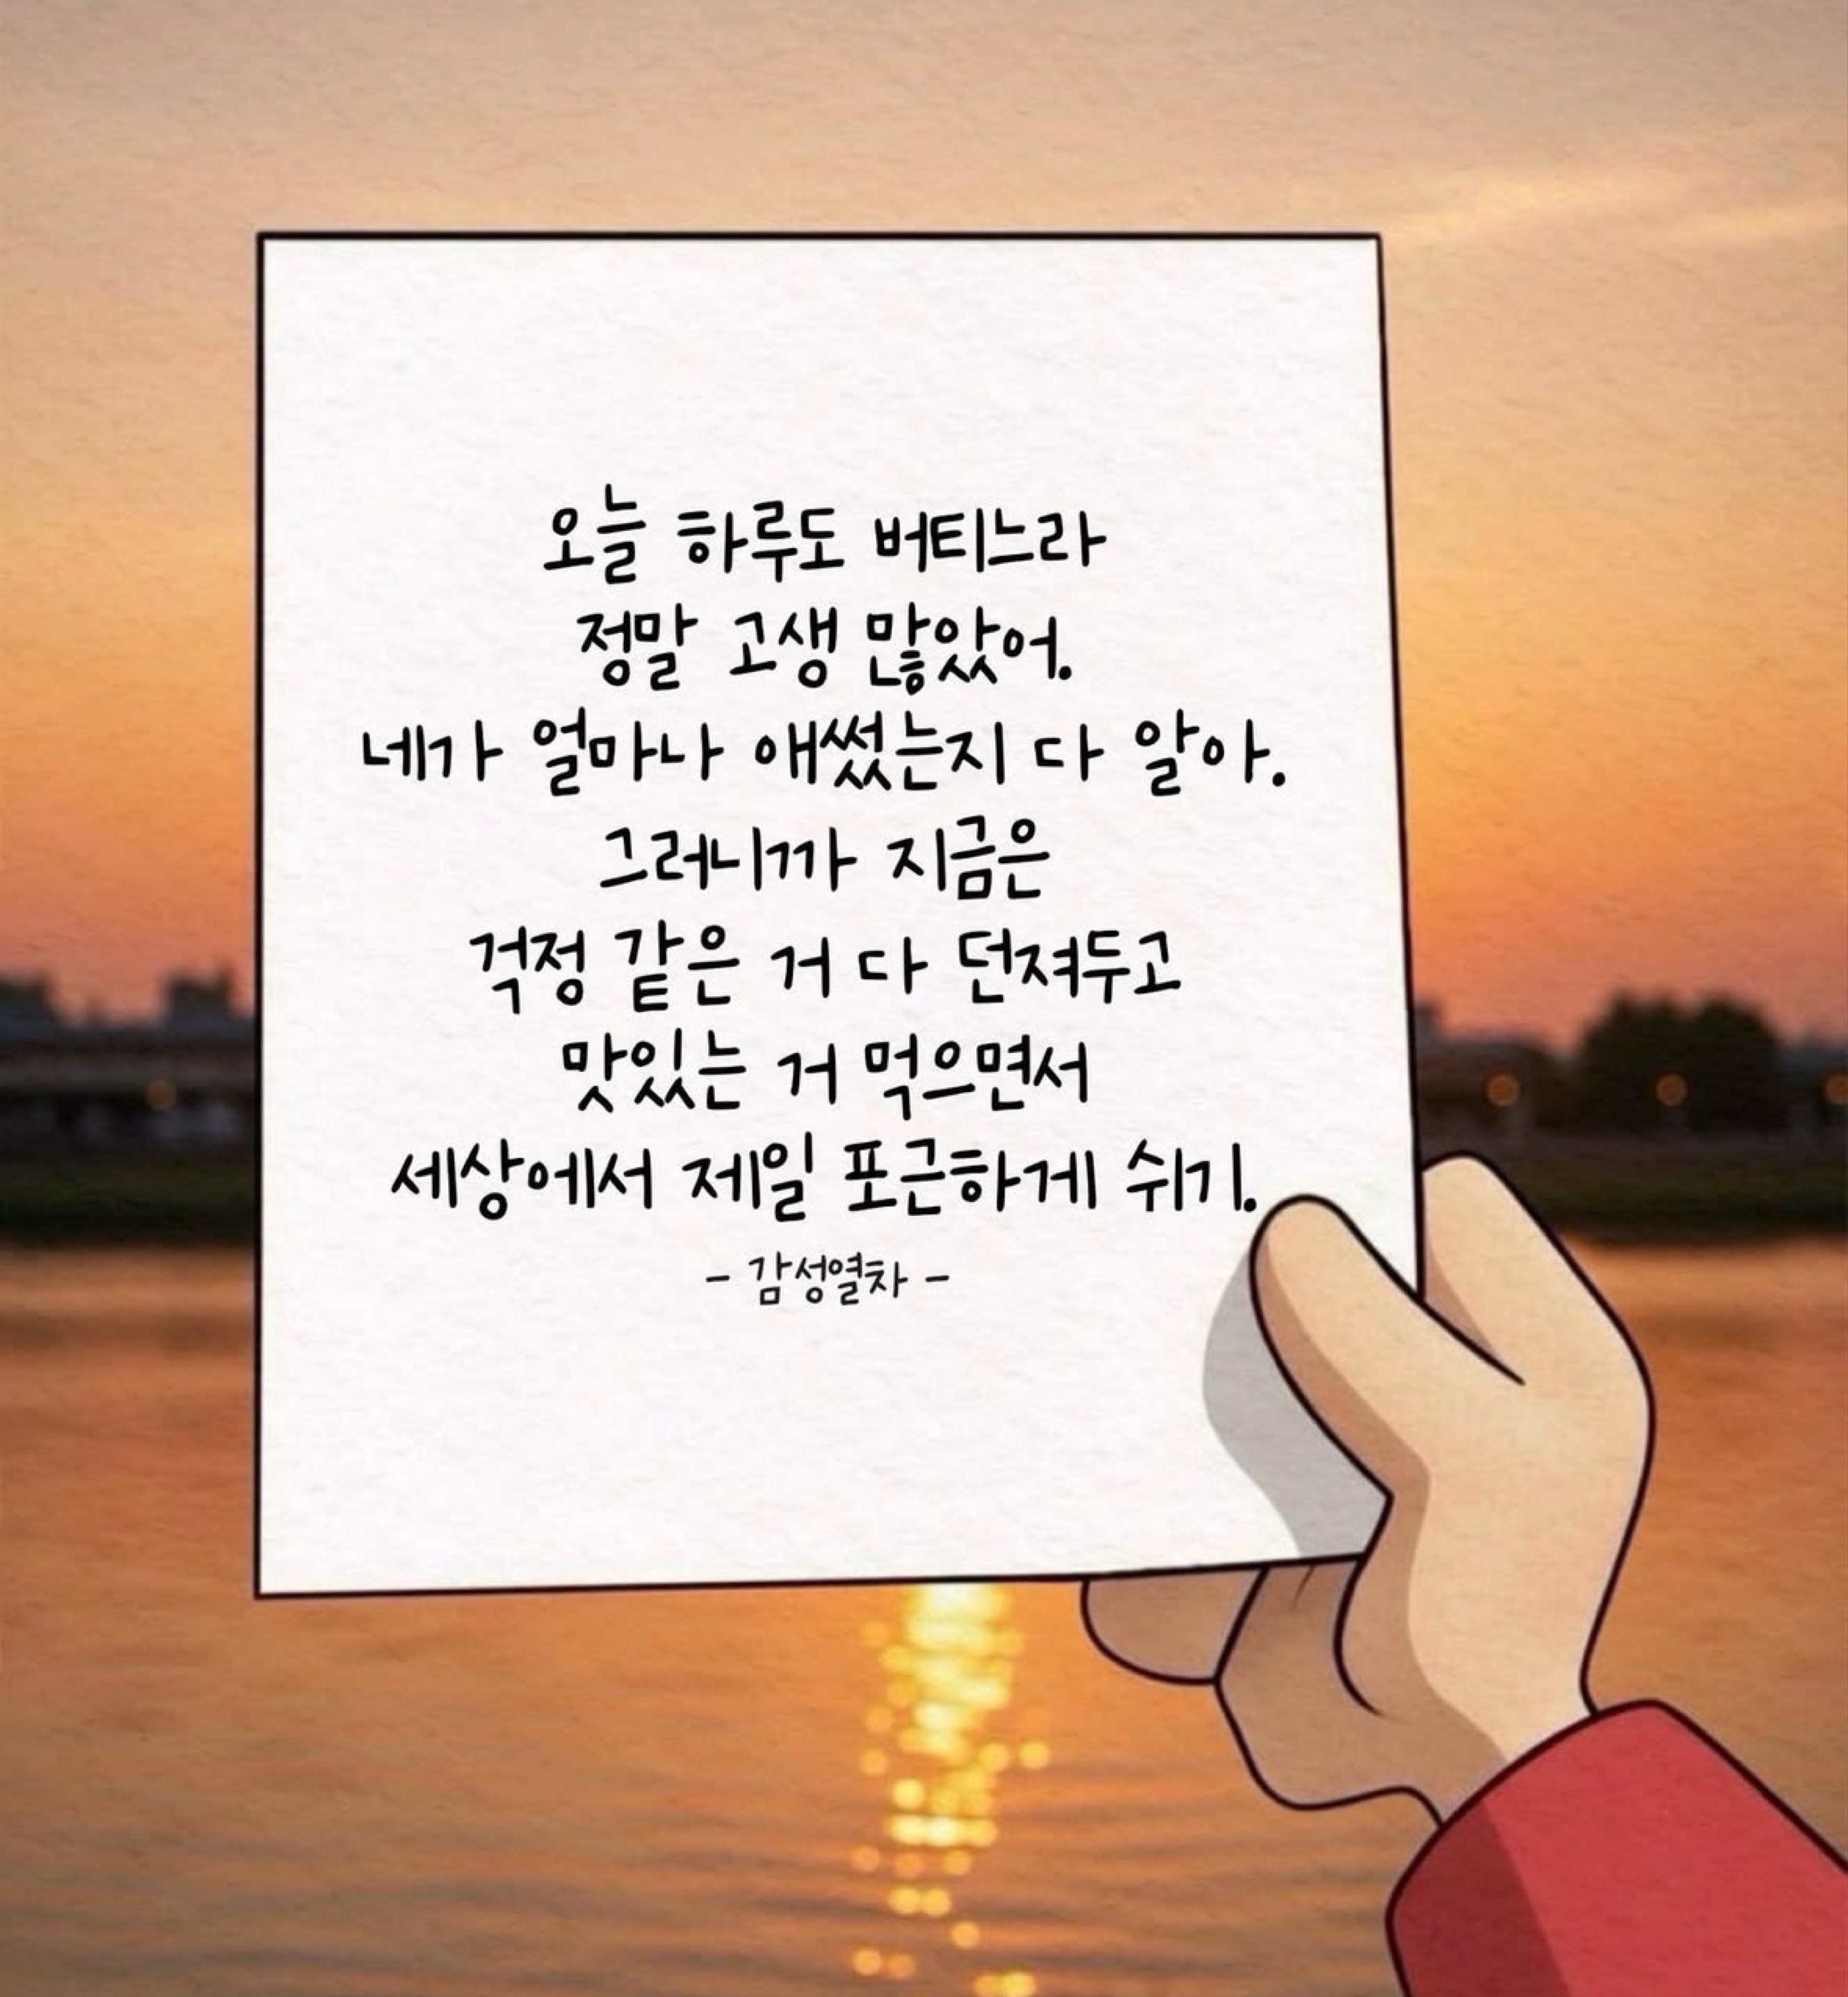 오늘 하루도 버티느라
정말 고생 많았어.
네가 얼마나 애썼는지 다 알아.
그러니까 지금은
걱정 같은 거 다 던져두고
맛있는 거 먹으면서
세상에서 제일 포근하게 쉬기.
- 감성열차 -